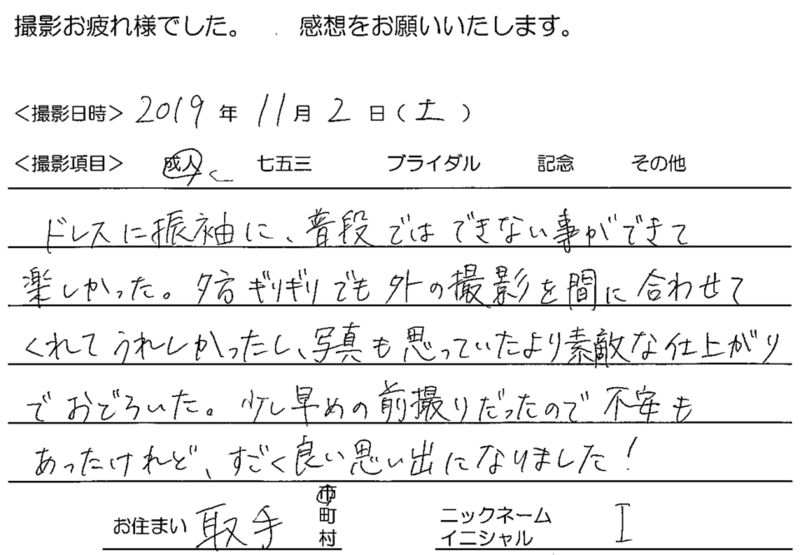 撮影お疲れ様でした。 感想をお願いいたします。
＜撮影日時＞ 2019 年 11 月 2 日（土）
＜撮影項目＞ 成人 七五三 ブライダル 記念 その他
ドレスに振袖に、普段ではできない事ができて
楽しかった。夕方ギリギリでも外の撮影を間に合わせて
くれてうれしかったし、写真も思っていたより素敵な仕上がり
でおどろいた。少し早めの前撮りだったので不安も
あったけれど、すごく良い思い出になりました！
お住まい 取手 市 町 村 ニックネーム イニシャル I